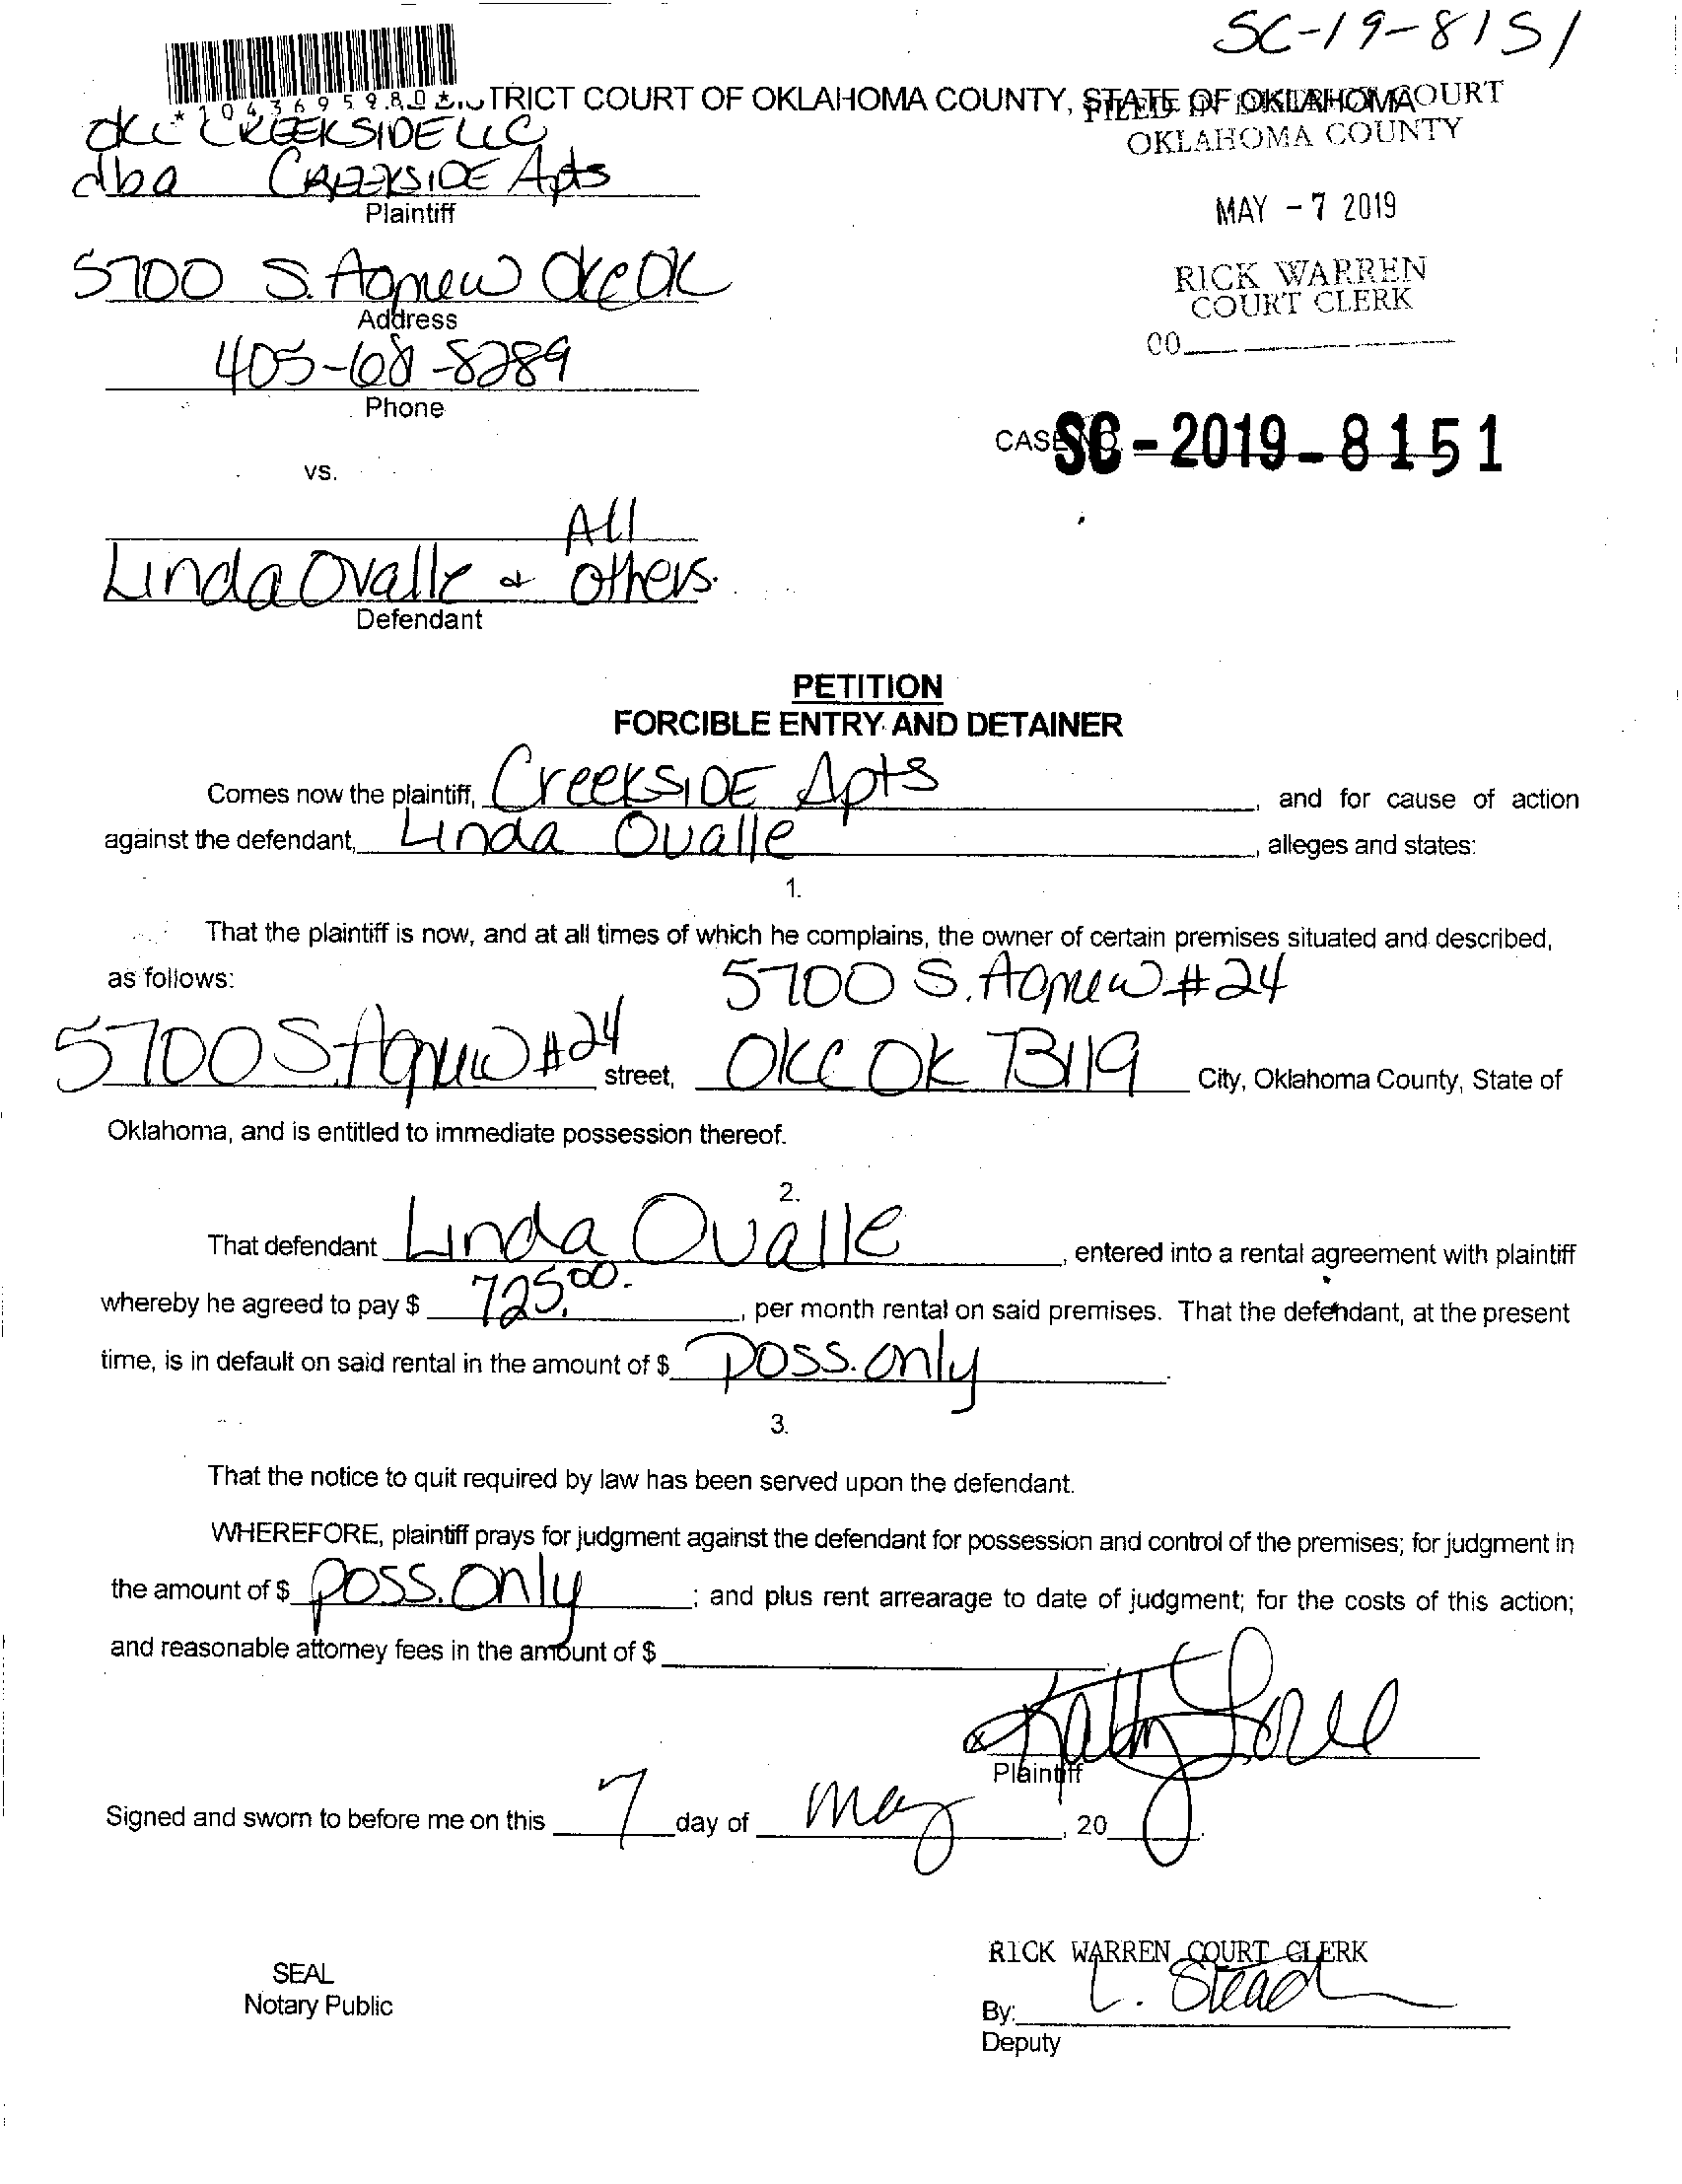 SC-19-8151
*1043695980*
TRICT COURT OF OKLAHOMA COUNTY, STATE OF OKLAHOMA
FILED IN COURT
OKLAHOMA COUNTY
OKC CREEKSIDE LLC
dba CREEKSIDE Apts
Plaintiff
MAY - 7 2019
5700 S. Agnew OKC OK
Address
RICK WARREN
COURT CLERK
00
405-68-8289
Phone
CASE NO. SC-2019-8151
vs.
All
Linda Ovalle & others.
Defendant
PETITION
FORCIBLE ENTRY AND DETAINER
Comes now the plaintiff, CreekSIDE Apts, and for cause of action
against the defendant, Linda Ovalle, alleges and states:
1.
That the plaintiff is now, and at all times of which he complains, the owner of certain premises situated and described,
as follows: 5700 S. Agnew #24
5700 S. Agnew #24 street, OKC OK 73119 City, Oklahoma County, State of
Oklahoma, and is entitled to immediate possession thereof.
2.
That defendant Linda Ovalle, entered into a rental agreement with plaintiff
whereby he agreed to pay $ 725.00., per month rental on said premises. That the defendant, at the present
time, is in default on said rental in the amount of $ poss. only.
3.
That the notice to quit required by law has been served upon the defendant.
WHEREFORE, plaintiff prays for judgment against the defendant for possession and control of the premises; for judgment in
the amount of $ poss. only; and plus rent arrearage to date of judgment; for the costs of this action;
and reasonable attorney fees in the amount of $
Plaintiff
Signed and sworn to before me on this 7 day of may, 20
RICK WARREN COURT CLERK
SEAL
Notary Public
By: L. Stead
Deputy